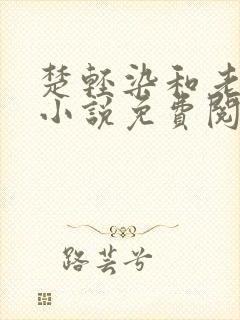 楚輕染和老
小說免費閱
路芸兮